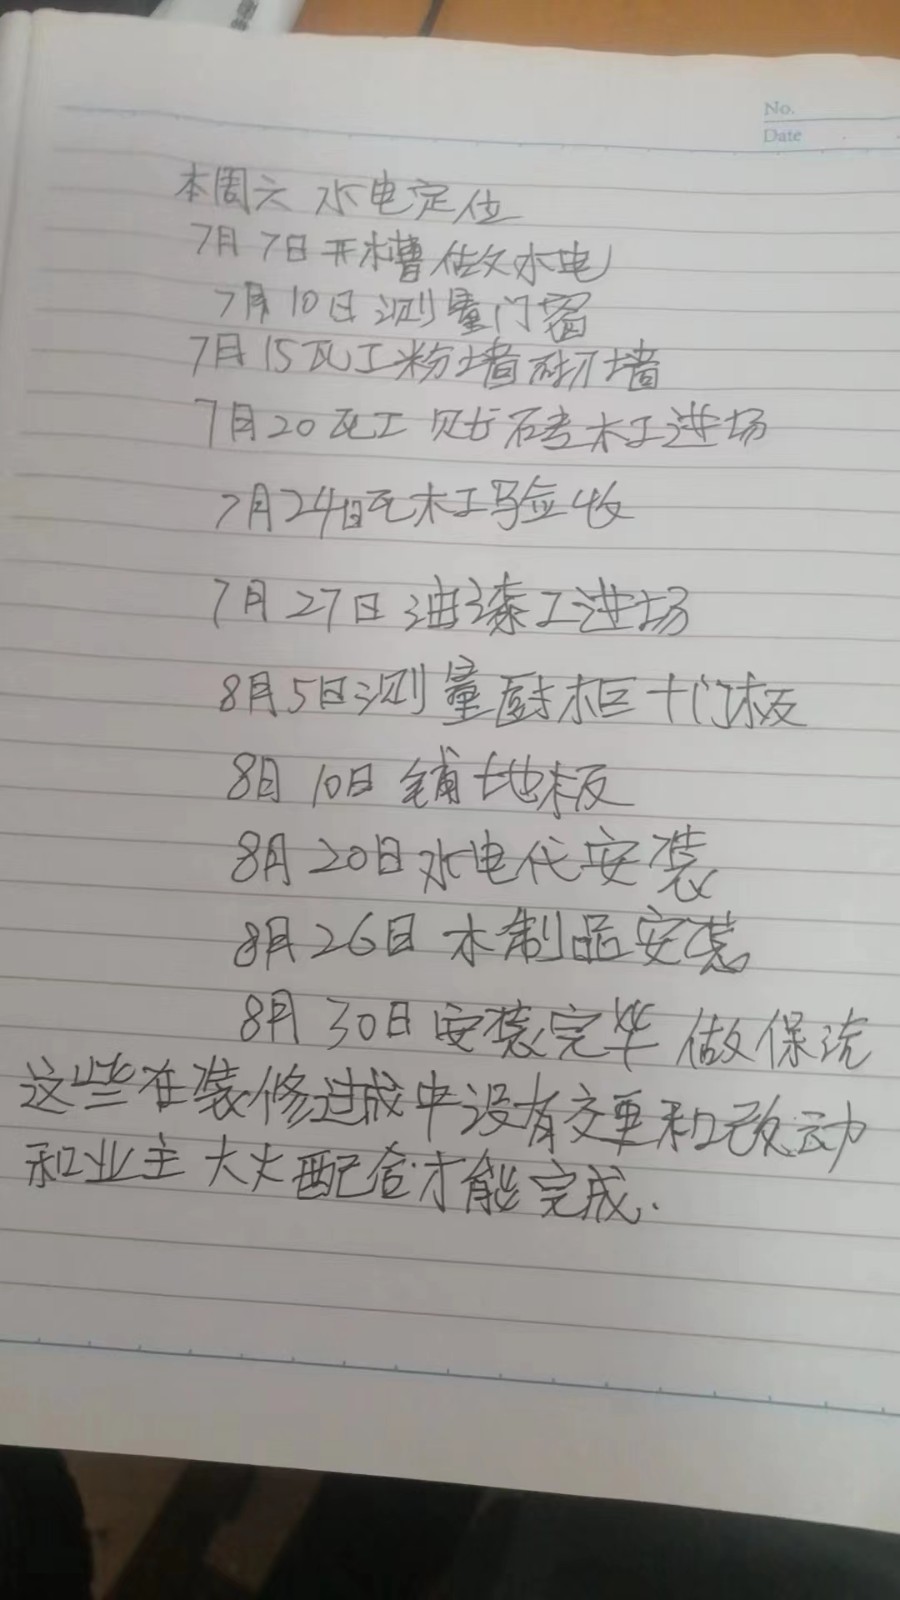 No.
Date
本周六 水电定位
7月7日开槽做水电
7月10日测量门窗
7月15瓦工粉墙砌墙
7月20瓦工贴砖木工进场
7月24日瓦木工验收
7月27日油漆工进场
8月5日测量厨柜十门板
8月10日铺地板
8月20日水电代安装
8月26日木制品安装
8月30日安装完毕 做保洁
这些在装修过成中没有变更和改动
和业主大力配合才能完成.